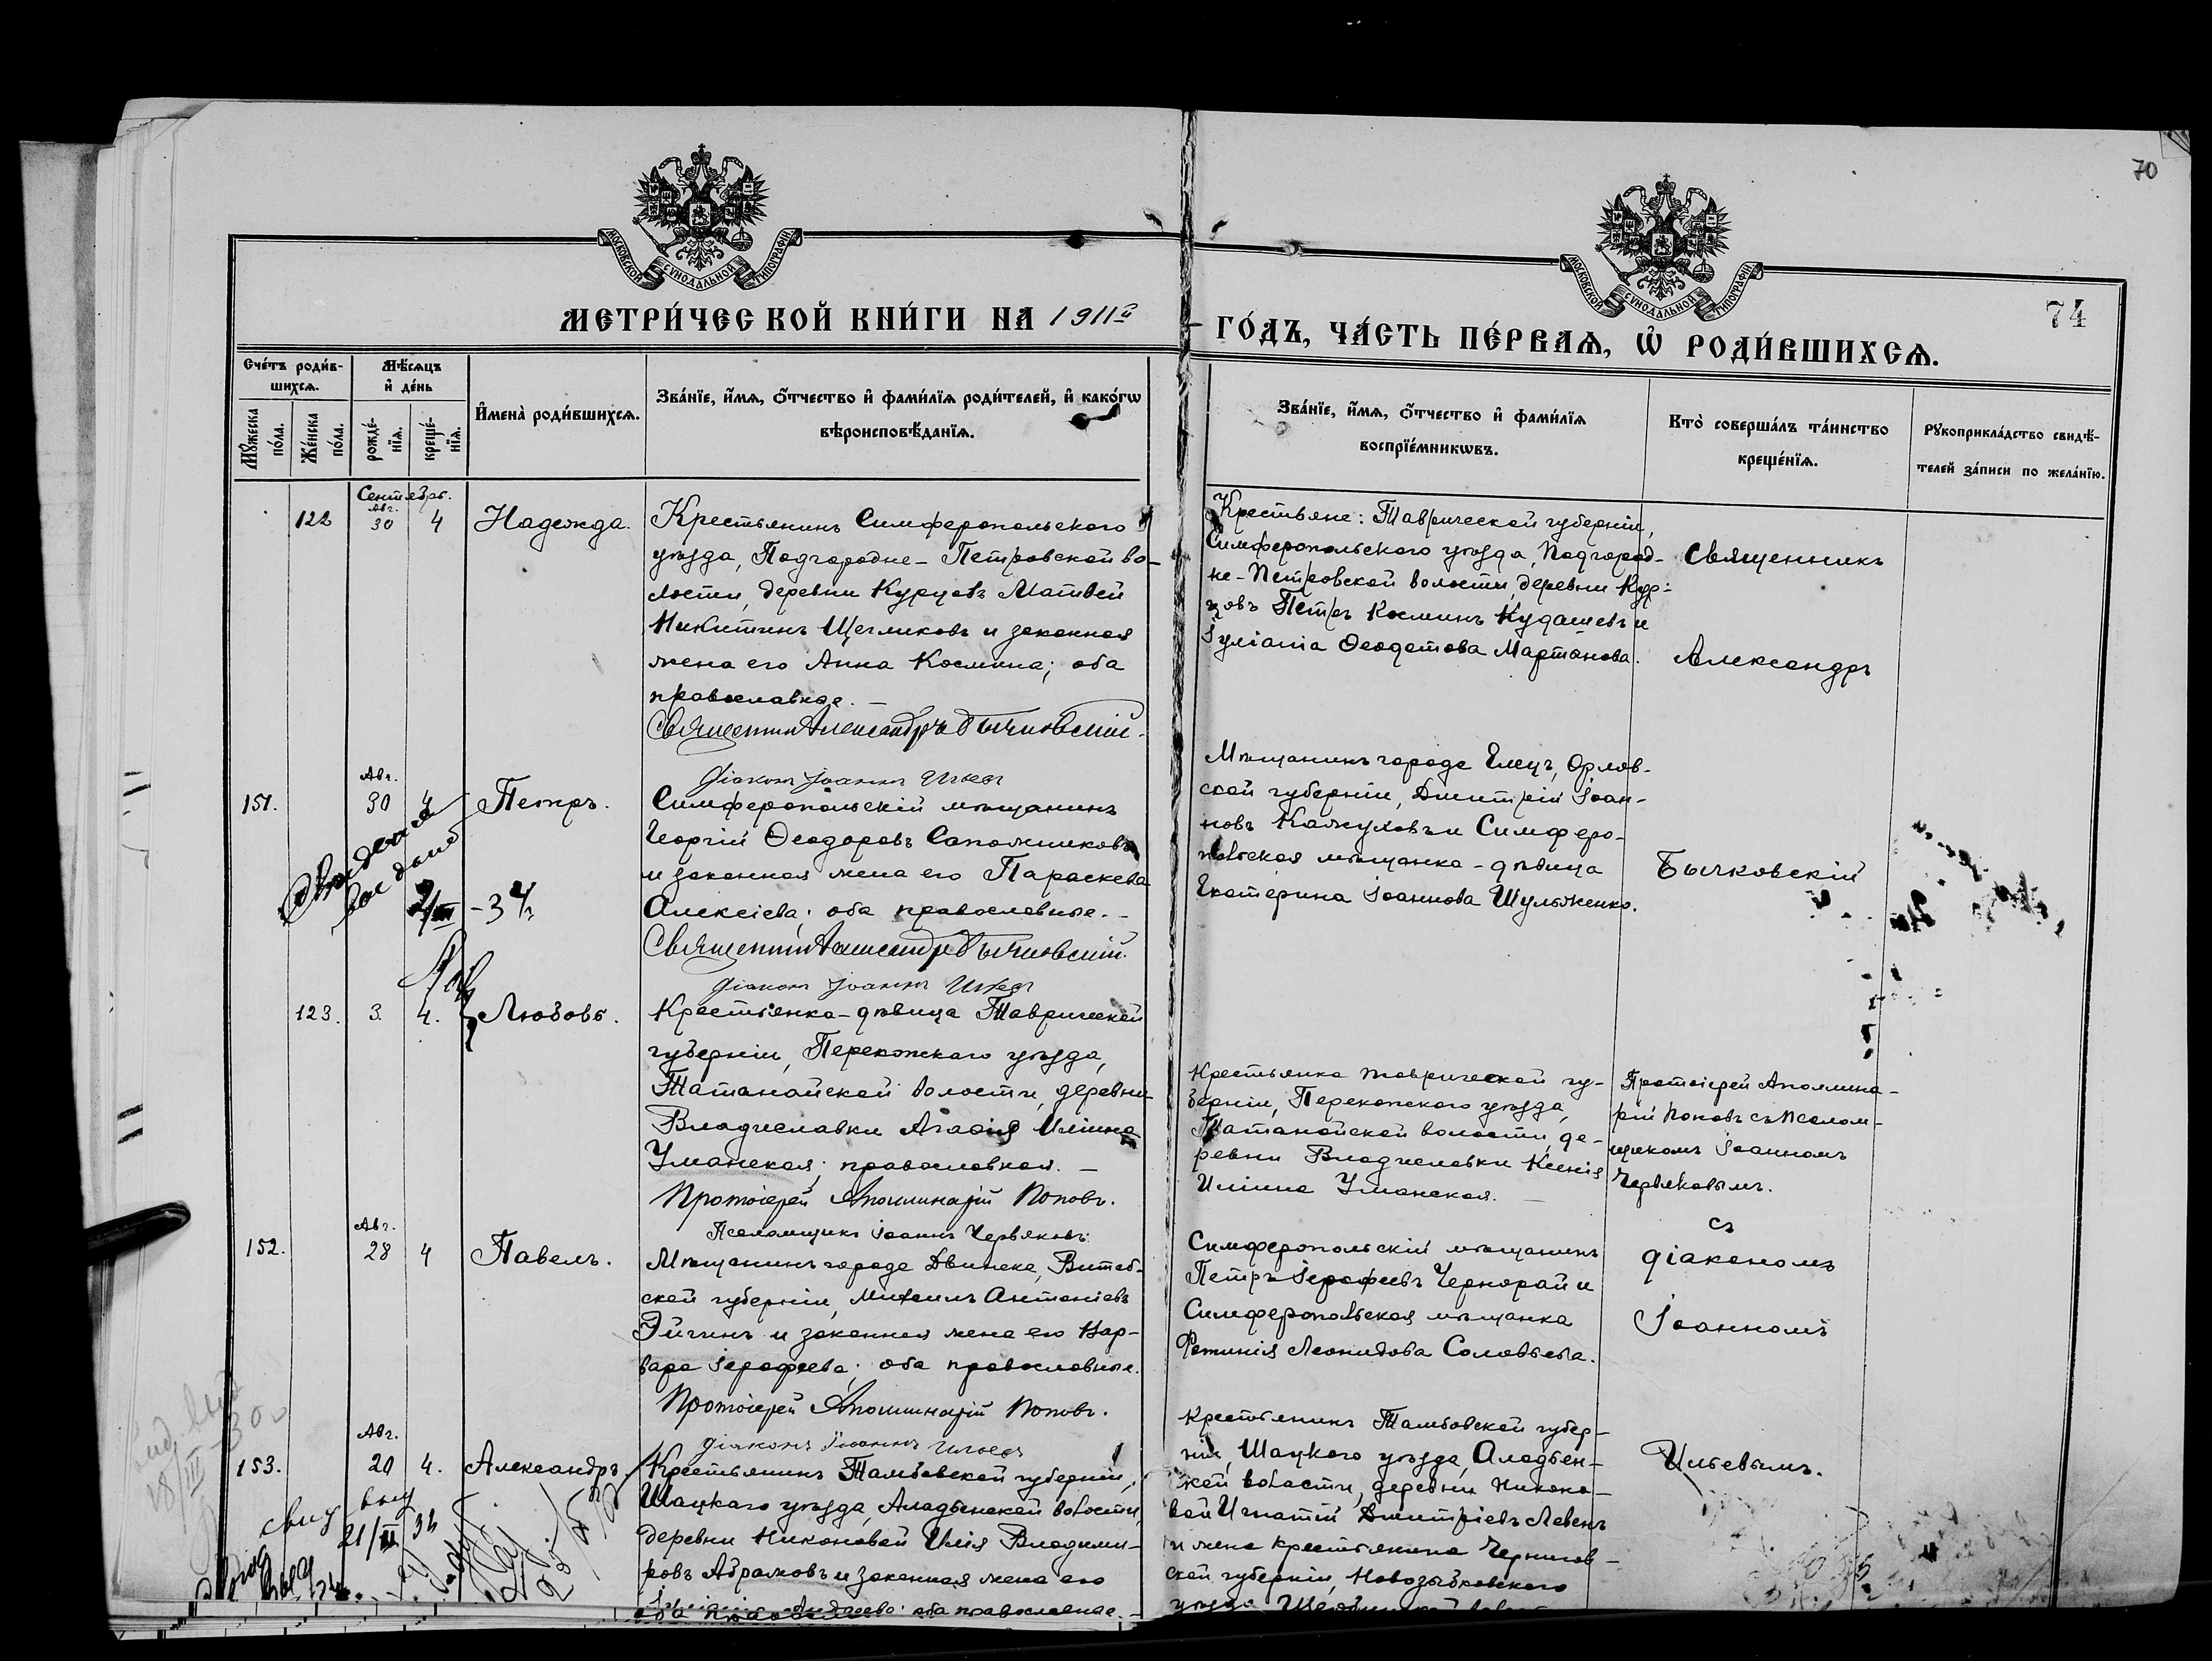 70
МОСКОВСКОЙ СУНОДАЛЬНОЙ ТИПОГРАФІИ
МОСКОВСКОЙ СУНОДАЛЬНОЙ ТИПОГРАФІИ
МЕТРИ́ЧЕСКОЙ КНИ́ГИ НА 1911й
ГО́ДЪ, ЧА́СТЬ ПЕ́РВАѦ, Ѽ РОДИ́ВШИХСѦ.
74
Сче́тъ роди́в-
шихсѧ.
Мꙋ́жеска
по́ла.
Же́нска
по́ла.
Мѣ́сѧцъ
и҆ де́нь
рожде́-
нїѧ.
креще́-
нїѧ.
И҆мена̀ роди́вшихсѧ.
Зва́нїе, и҆́мѧ, ѻ҆́тчество и҆ фами́лїѧ роди́телей, и҆ како́гѡ
вѣроисповѣ́данїѧ.
Зва́нїе, и҆́мѧ, ѻ҆́тчество и҆ фами́лїѧ
воспрїе́мникѡвъ.
Кто̀ соверша́лъ та́инство
креще́нїѧ.
Рꙋкоприкла́дство свидѣ́-
телей за́писи по жела́нїю.
Сентябрь.
Авг.
122 30 4 Надежда.
Крестьянинъ Симферопольскаго
уѣзда, Подгородне-Петровской во-
лости, деревни Курцовъ Матвей
Никитинъ Щегликовъ и законная
жена его Анна Космина; оба
православные. —
Священникъ Александръ Бычковскій.
Діаконъ Іоаннъ Ильевъ
Крестьяне: Таврической губерніи,
Симферопольскаго уѣзда, Подгород-
не-Петровской волости, деревни Кур-
цовъ Петръ Косминъ Кудашевъ и
Іуліанія Ѳеодотова Мартанова.
Священникъ
Александръ
Бычковскій
Авг.
151. 30 4 Петръ.
Симферопольскій мѣщанинъ
Георгій Ѳеодоровъ Сапожниковъ
и законная жена его Параскева
Алексіева; оба православные. —
Священникъ Александръ Бычковскій.
Діаконъ Іоаннъ Ильевъ
Мѣщанинъ города Елецъ, Орлов-
ской губерніи, Дмитрій Іоан-
новъ и Симферо-
польская мѣщанка-дѣвица
Екатерина Іоаннова Шульженко.
123. 3. 4. Любовь.
Крестьянка-дѣвица Таврической
губерніи, Перекопскаго уѣзда,
Татанайской волости, деревни
Владиславки Агаѳія Иліина
Уманская; православная. —
Протоіерей Аполлинарій Поповъ.
Псаломщикъ Іоаннъ Червяковъ.
Крестьянка Таврической гу-
берніи, Перекопскаго уѣзда,
Татанайской волости, де-
ревни Владиславки Ксенія
Иліина Уманская. —
Протоіерей Аполлина-
рій Поповъ съ псалом-
щикомъ Іоанномъ
Червяковымъ.
Авг.
152. 28 4 Павелъ.
Мѣщанинъ города Двинска, Витеб-
ской губерніи, Михаилъ Антоніевъ
Эйгинъ и законная жена его Вар-
вара Іероѳеева; оба православные.
Протоіерей Аполлинарій Поповъ.
діаконъ Іоаннъ Ильевъ
Симферопольскій мѣщанинъ
Петръ Іероѳеевъ Чернорай и
Симферопольская мѣщанка
Фотинія Леонидова Соловьева.
съ
діакономъ
Іоанномъ
Ильевымъ.
Авг.
153. 20 4. Александръ.
Крестьянинъ Тамбовской губерніи,
Шацкаго уѣзда, Аладьинской волости,
деревни Никоновой Илія Владими-
ровъ Абрамовъ и законная жена его
оба православные. —
Крестьянинъ Тамбовской губер-
ніи, Шацкаго уѣзда, Аладьин-
ской волости, деревни Никоно-
вой Игнатій Дмитріевъ Левинъ
и жена крестьянина Чернигов-
ской губерніи, Новозыбковскаго
уѣзда